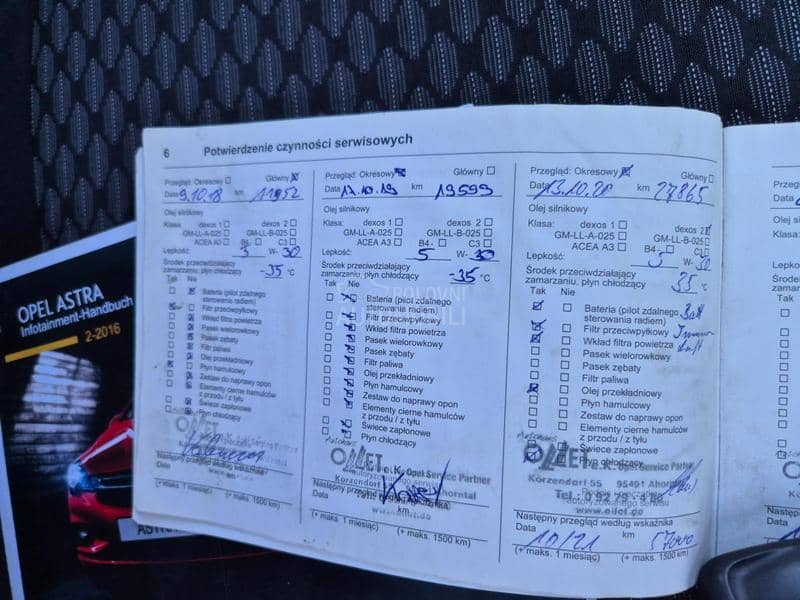 6 Potwierdzenie czynności serwisowych
Przegląd: Okresowy Główny
Data 9.10.18 km
Olej silnikowy
Klasa: dexos 1 dexos 2
GM-LL-A-025 GM-LL-B-025
ACEA A3 B4 C3
Lepkość: 5 W-30
Środek przeciwdziałający
zamarzaniu, płyn chłodzący -35 °C
Tak Nie
Bateria (pilot zdalnego
sterowania radiem)
Filtr przeciwpyłkowy
Wkład filtra powietrza
Pasek wielorowkowy
Pasek zębaty
Filtr paliwa
Olej przekładniowy
Płyn hamulcowy
Zestaw do naprawy opon
Elementy cierne hamulców
z przodu / z tyłu
Świece zapłonowe
Płyn chłodzący
Następny przegląd według wskaźnika
Data
(+ maks. 1 miesiąc) (+ maks. 1500 km)
Przegląd: Okresowy Główny
Data 17.10.19 km 19599
Olej silnikowy
Klasa: dexos 1 dexos 2
GM-LL-A-025 GM-LL-B-025
ACEA A3 B4 - C3
Lepkość: 5 W-30
Środek przeciwdziałający
zamarzaniu, płyn chłodzący -35 °C
Tak Nie
Bateria (pilot zdalnego
sterowania radiem)
Filtr przeciwpyłkowy
Wkład filtra powietrza
Pasek wielorowkowy
Pasek zębaty
Filtr paliwa
Olej przekładniowy
Płyn hamulcowy
Zestaw do naprawy opon
Elementy cierne hamulców
z przodu / z tyłu
Świece zapłonowe
Płyn chłodzący
Opel Service Partner
Korzendorf Ahorntal
Data km
(+ maks. 1 miesiąc) (+ maks. 1500 km)
Przegląd: Okresowy Główny
Data 13.10.20 km 27865
Olej silnikowy
Klasa: dexos 1 dexos 2
GM-LL-A-025 GM-LL-B-025
ACEA A3 B4 - C3
Lepkość: 5 W-30
Środek przeciwdziałający
zamarzaniu, płyn chłodzący 35 °C
Tak Nie
Bateria (pilot zdalnego
sterowania radiem)
Filtr przeciwpyłkowy
Wkład filtra powietrza
Pasek wielorowkowy
Pasek zębaty
Filtr paliwa
Olej przekładniowy
Płyn hamulcowy
Zestaw do naprawy opon
Elementy cierne hamulców
z przodu / z tyłu
Świece zapłonowe
e.K. Opel Service Partner
Korzendorf 55 95491 Ahorntal
Tel.: 0 92 79 -
www.eifet.de
Następny przegląd według wskaźnika
Data 10/21 km
(+ maks. 1 miesiąc) (+ maks. 1500 km)
OPEL ASTRA
Infotainment-Handbuch
2-2016
POLOVNI